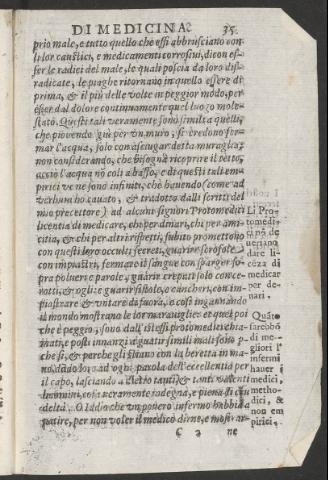 DI MEDICINA. 35.
prio male, e tutto quello che essi abbrusciano con
li lor caustici, e medicamenti corrosiui, dicon es-
ser le radici del male, le quali poscia da loro dis-
radicate, le piaghe ritornano in quello essere di
prima, & il più delle volte in peggior modo, per
esser dal dolore continuamente quel luogo mole-
stato. Questi tali veramente sono simili a quelli,
che piouendo giù per vn muro, si credono fer-
mar l'acqua, solo con asciugar detta muraglia,
non considerando, che bisogna ricoprire il tetto,
acciò l'acqua nō coli a basso, e di questi tali em-
pirici ve ne sono infiniti, chè hauendo (come ad
verbum ho cauato, & tradotto dalli scritti del
mio precettore) ad alcuni signori Protomedici
licentia di medicare, chi per dinari, chi per ami-
citia, & chi per altri rispetti, subito promettono
con questi loro occulti secreti, guarire scrofole
con impiastri, fermare il sangue con sparger so-
pra poluere e parole, guarir crepati solo
& gli guarir fistole, e cancheri, con im-
piastrare & vntare di fuora, e così ingannando
il mondo mostrano le lor marauiglie: et quel poi
che è peggio, sono dall' essi protomedici chia-
mati, e posti innanzi a guarir simili mali sono p
che sì, & perche gli stiano con la beretta in ma-
no, dādo loro ad ogni parola dell'eccellentia per
il capo, lasciando a dietro tanti & tanti valenti
huomini, cosa veramente indegna, e piena di cru
deltà. O Iddio che vn pouero infermo habbia a
patire, per non voler il medico dirne, e mostrar-
C 2 ne
Li Pro-
tomedi-
ci nō de
ueriano
dare li-
cēza di
medicar
per de-
nari.
Quāto
sarebbō
di me-
gliori l'
infermi
hauer i
medici,
metho-
dici, &
non em
pirici.